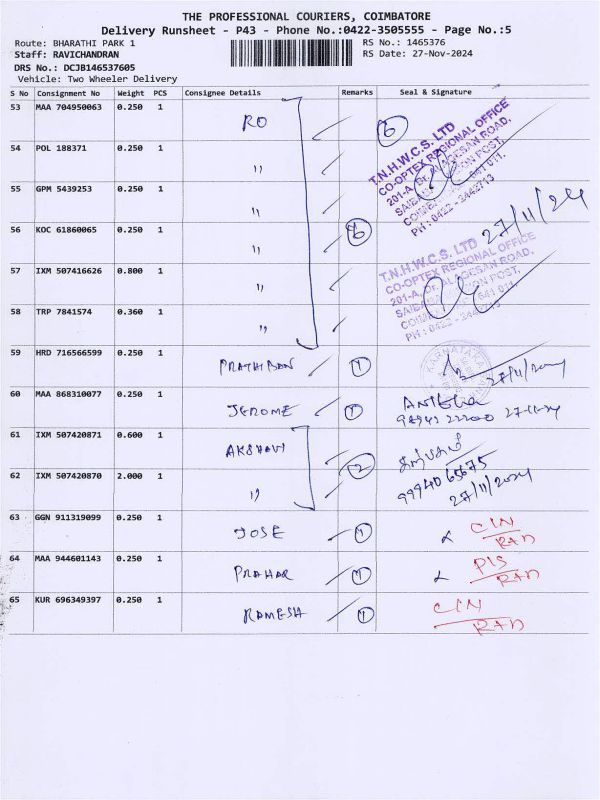 THE PROFESSIONAL COURIERS, COIMBATORE
Delivery Runsheet - P43 - Phone No.:0422-3505555 - Page No.:5
Route: BHARATHI PARK 1 RS No.: 1465376
Staff: RAVICHANDRAN RS Date: 27-Nov-2024
DRS No.: DCJB146537605
Vehicle: Two Wheeler Delivery
S No Consignment No Weight PCS Consignee Details Remarks Seal & Signature
53 MAA 704950063 0.250 1 RO 6
T.N.H.W.C.S. LTD
CO-OPTEX REGIONAL OFFICE
201-A, Dr. ALAGESAN ROAD,
SAIBABA MISSION POST,
641 011.
PH : 0422 - 2442713
54 POL 188371 0.250 1 "
55 GPM 5439253 0.250 1 "
27/11/24
56 KOC 61860065 0.250 1 " 6
T.N.H.W.C.S. LTD
CO-OPTEX REGIONAL OFFICE
201-A, Dr. ALAGESAN ROAD,
SAIBABA MISSION POST,
641 011.
PH : 0422 - 2442713
57 IXM 507416626 0.800 1 "
58 TRP 7841574 0.360 1 "
59 HRD 716566599 0.250 1 PRATHIBAN 1 KARNATAKA 27/11/2024
60 MAA 868310077 0.250 1 JEROME 1
27-11-24
61 IXM 507420871 0.600 1 AKSHAVI 2
கற்பகம்
9994065675
27/11/2024
62 IXM 507420870 2.000 1 "
63 GGN 911319099 0.250 1 JOSE 1 CIN
RAD
64 MAA 944601143 0.250 1 PRAHAR 1 PIS
RAD
65 KUR 696349397 0.250 1 RAMESH 1 CIN
RAD